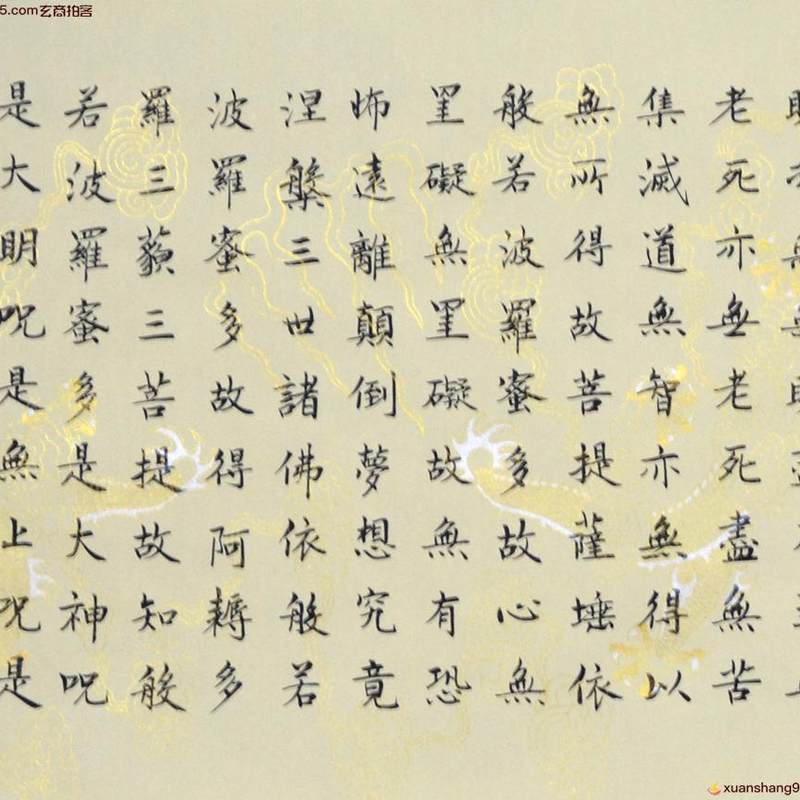 5.com玄商拍客
老死亦無老死盡無苦
集滅道無智亦無得以
無所得故菩提薩埵依
般若波羅蜜多故心無
罣礙無罣礙故無有恐
怖遠離顛倒夢想究竟
涅槃三世諸佛依般若
波羅蜜多故得阿耨多
羅三藐三菩提故知般
若波羅蜜多是大神呪
是大明呪是無上呪是
xuanshang9